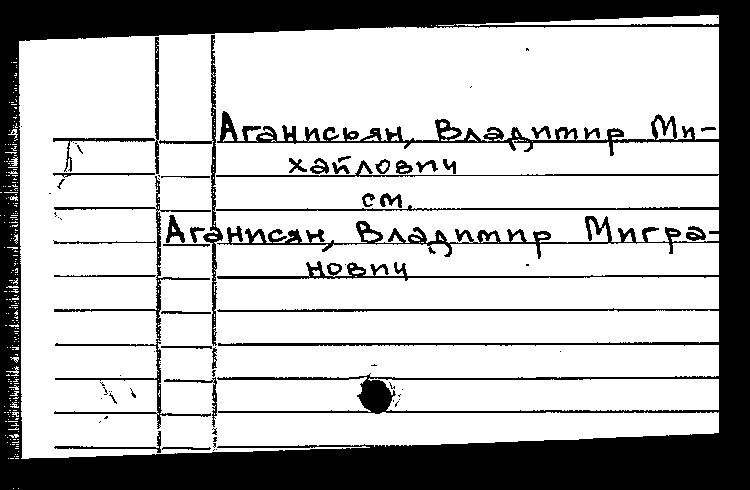 Аганисьян, Владимир Ми-
хайлович
см.
Аганисян, Владимир Мигра-
нович